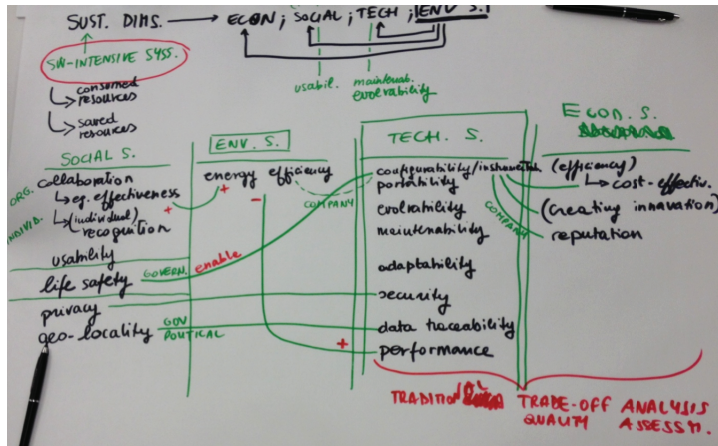 SUST. DIMS. → ECON; SOCIAL; TECH; ENV S.
SW-INTENSIVE SYSS.
consumed
resources
saved
resources
usabil.
maintenab.
evolvability
SOCIAL S.
ORG.
collaboration
eg. effectiveness
INDIVID.
(individual)
recognition
usability
life safety
privacy
geo-locality
GOVERN.
enable
GOV
POLITICAL
ENV. S.
energy efficiency
+
-
+
COMPANY
TECH. S.
portability
evolvability
maintenability
adaptability
security
data traceability
performance
ECON. S.
(efficiency)
cost-effectiv.
(creating innovation)
reputation
COMPANY
TRADE-OFF ANALYSIS
QUALITY ASSESSM.